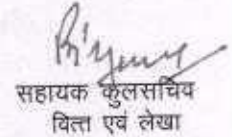 सहायक कुलसचिव
वित्त एवं लेखा